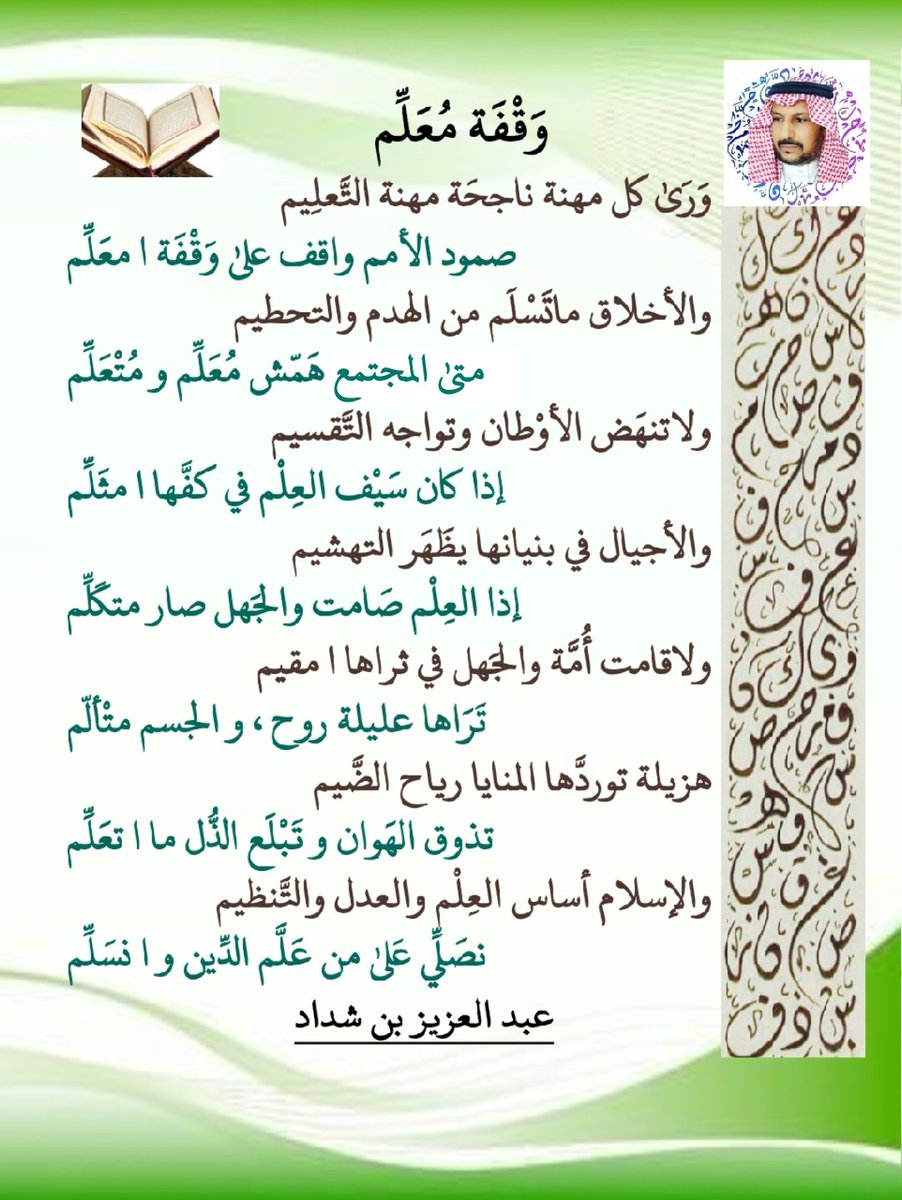 وَقْفَة مُعَلِّم
وَرَىٰ كل مهنة ناجحَة مهنة التَّعلِيم
صمود الأمم واقف علىٰ وَقْفَة ا معَلِّم
والأخلاق ماتَسْلَم من الهدم والتحطيم
متىٰ المجتمع هَمّش مُعَلِّم و مُتْعَلِّم
ولاتنهَض الأوْطان وتواجه التَّقسيم
إذا كان سَيْف العِلْم في كفَّها ا مثَلِّم
والأجيال في بنيانها يظَهَر التهشيم
إذا العِلْم صَامت والجَهل صار متكَلِّم
ولاقامت أُمَّة والجَهل في ثراها ا مقيم
تَرَاها عليلة روح ، و الجسم متْألّم
هزيلة توردَّها المنايا رياح الضَّيم
تذوق الهَوان و تَبْلَع الذُّل ما ا تعَلِّم
والإسلام أساس العِلْم والعدل والتَّنظيم
نصَلِّي عَلىٰ من عَلَّم الدِّين و ا نسَلِّم
عبد العزيز بن شداد